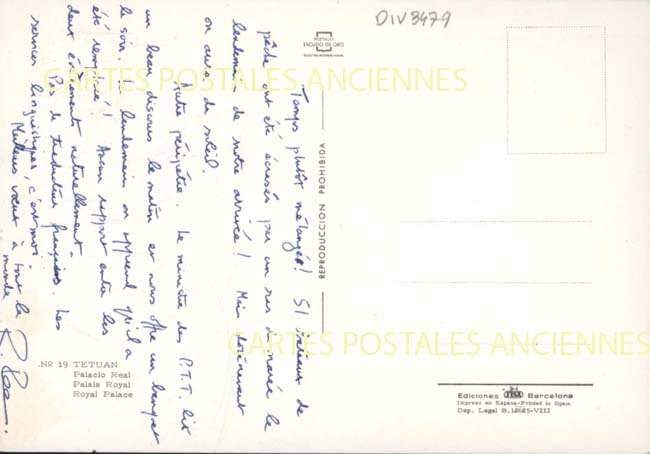 DIV3479
POSTALES
ESCUDO DE ORO
Temps plutôt mélangé! 51 bateaux de
pêche ont été écrasés par un ras de marée le
lendemain de notre arrivée! Mais dorénavant
on aura du soleil.
Autre péripétie. Le ministre des P.T.T. lit
un beau discours le matin et nous offre un banquet
le soir. Le lendemain on apprend qu'il a
été remplacé! Aucun rapport entre les
deux événements naturellement.
Pas de traducteur français. Les
services linguistiques, c'est moi.
Meilleurs vœux à tout le
monde
REPRODUCCION PROHIBIDA
CARTES POSTALES ANCIENNES
CARTES POSTALES ANCIENNES
Nº 19 TETUAN
Palacio Real
Palais Royal
Royal Palace
Ediciones Barcelona
Impreso en España-Printed in Spain
Dep. Legal B. 12625-VIII